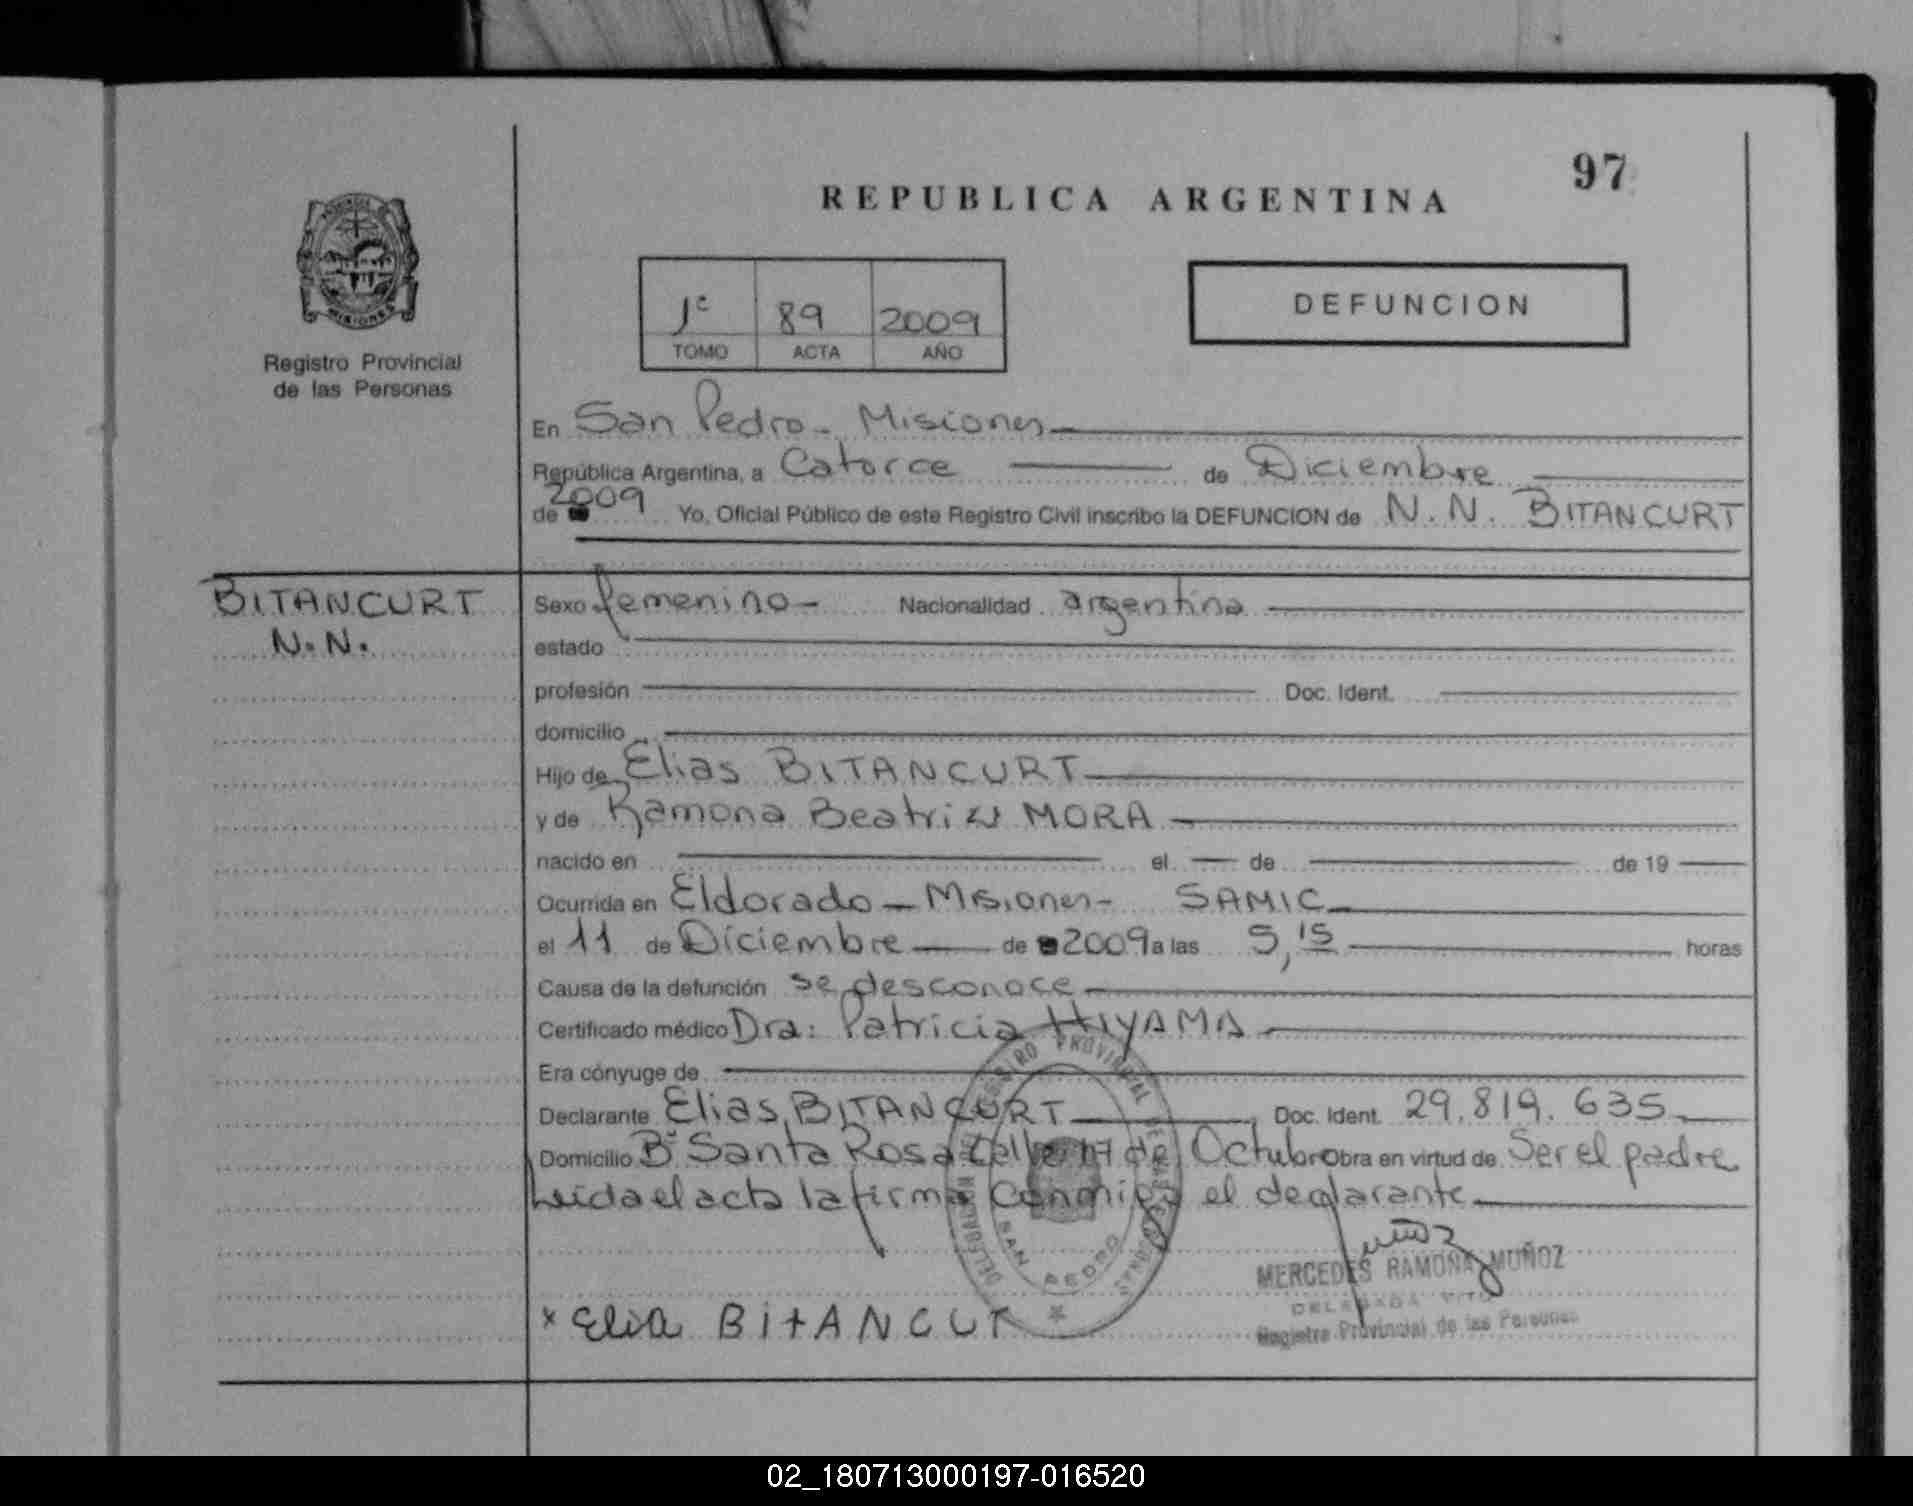 97
REPUBLICA ARGENTINA
PROVINCIA DE
MISIONES
Registro Provincial
de las Personas
1º 89 2009
TOMO ACTA AÑO
DEFUNCION
En San Pedro - Misiones
República Argentina, a Catorce de Diciembre
de 2009 Yo, Oficial Público de este Registro Civil inscribo la DEFUNCION de N.N. BITANCURT
BITANCURT
N.N.
Sexo femenino - Nacionalidad argentina
estado
profesión Doc. Ident.
domicilio
Hijo de Elias BITANCURT
y de Ramona Beatriz MORA
nacido en el de de 19
Ocurrida en Eldorado - Misiones - SAMIC
el 11 de Diciembre de 2009 a las 5,15 horas
Causa de la defunción se desconoce
Certificado médico Dra: Patricia HIYAMA
Era cónyuge de
Declarante Elias BITANCURT Doc. Ident. 29.819.635
Domicilio Bº Santa Rosa Calle 17 de Octubre obra en virtud de Ser el padre
Leida el acta la firma conmigo el declarante
REGISTRO PROVINCIAL DE LAS PERSONAS
DELEGACION
SAN PEDRO
Muñoz
MERCEDES RAMONA MUÑOZ
DELEGADA
Registro Provincial de las Personas
x Elia BitANCUT
02_180713000197-016520